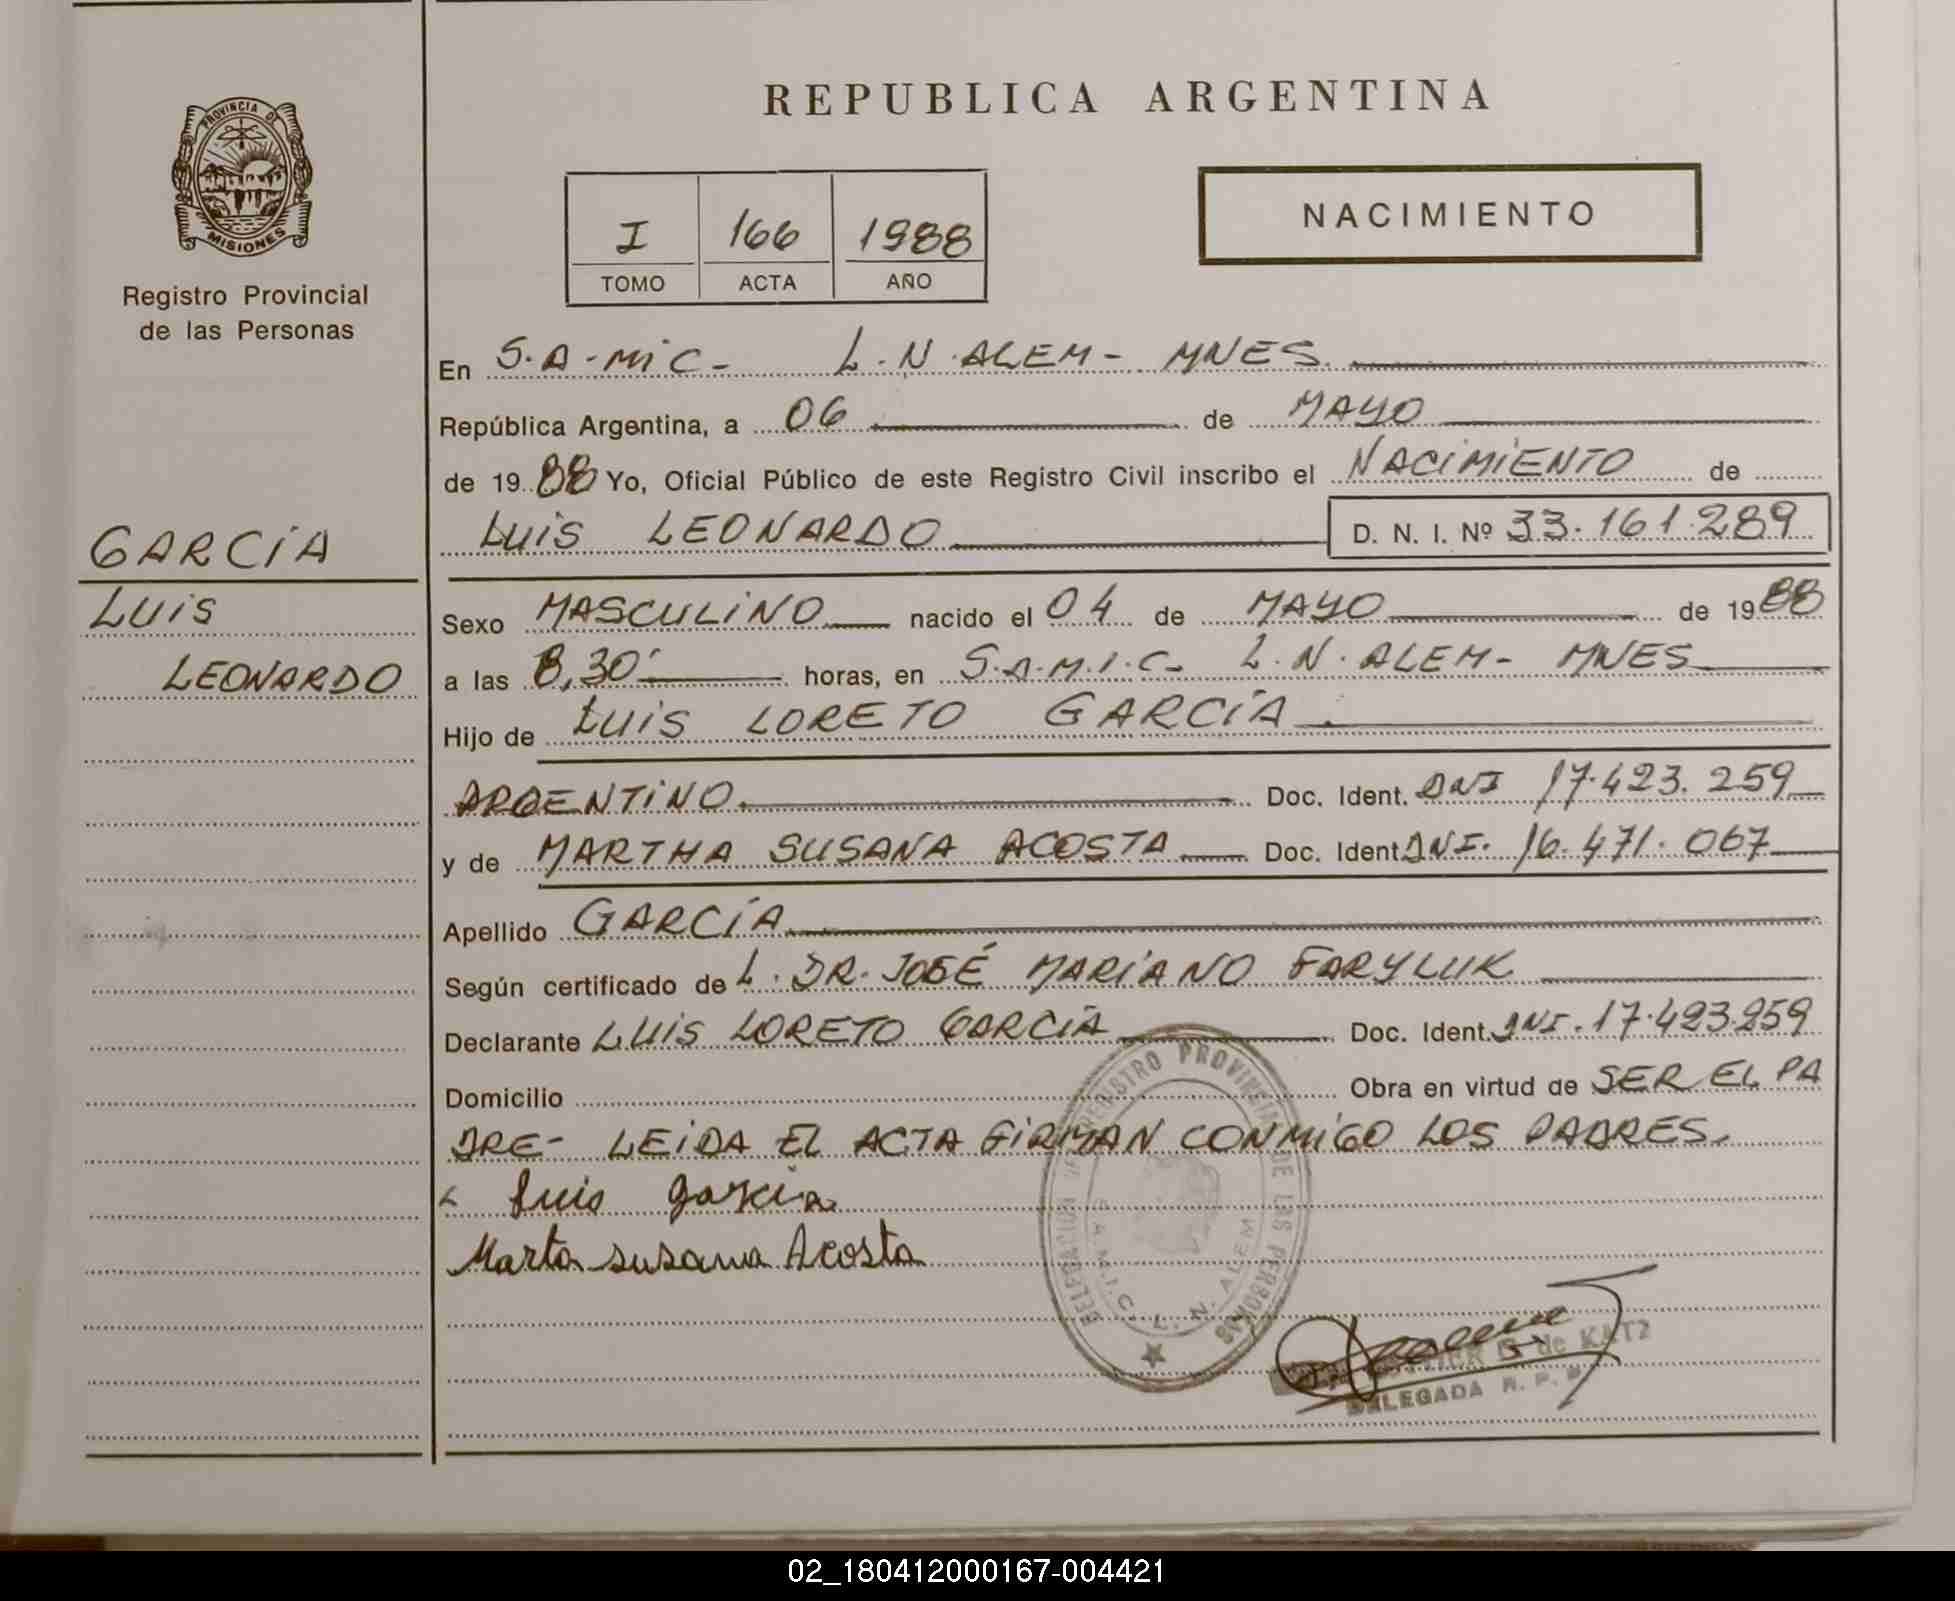 REPUBLICA ARGENTINA
PROVINCIA DE
MISIONES
Registro Provincial
de las Personas
I 166 1988
TOMO ACTA AÑO
NACIMIENTO
En S.A-MiC- L.N.ALEM- MNES.
República Argentina, a 06 de MAYO
de 1988 Yo, Oficial Público de este Registro Civil inscribo el NACIMIENTO de
LUIS LEONARDO D. N. I. Nº 33.161.289
GARCÍA
LUIS
LEONARDO
Sexo MASCULINO nacido el 04 de MAYO de 1988
a las 8,30' horas, en S.A.M.I.C- L.N.ALEM- MNES
Hijo de LUIS LORETO GARCÍA
ARGENTINO Doc. Ident. DNI 17.423.259
y de MARTHA SUSANA ACOSTA Doc. Ident. DNI. 16.471.067
Apellido GARCÍA
Según certificado de L. DR. JOSÉ MARIANO FARYLUK
Declarante LUIS LORETO GARCIA Doc. Ident. DNI. 17.423.259
Domicilio Obra en virtud de SER EL PA
DRE- LEIDA EL ACTA FIRMAN CONMIGO LOS PADRES.
Luis Garcia
Marta susana Acosta
DELEGACION DEL REGISTRO PROVINCIAL DE LAS PERSONAS
S.A.M.I.C. L. N. ALEM
de KATZ
DELEGADA R. P. P.
02_180412000167-004421